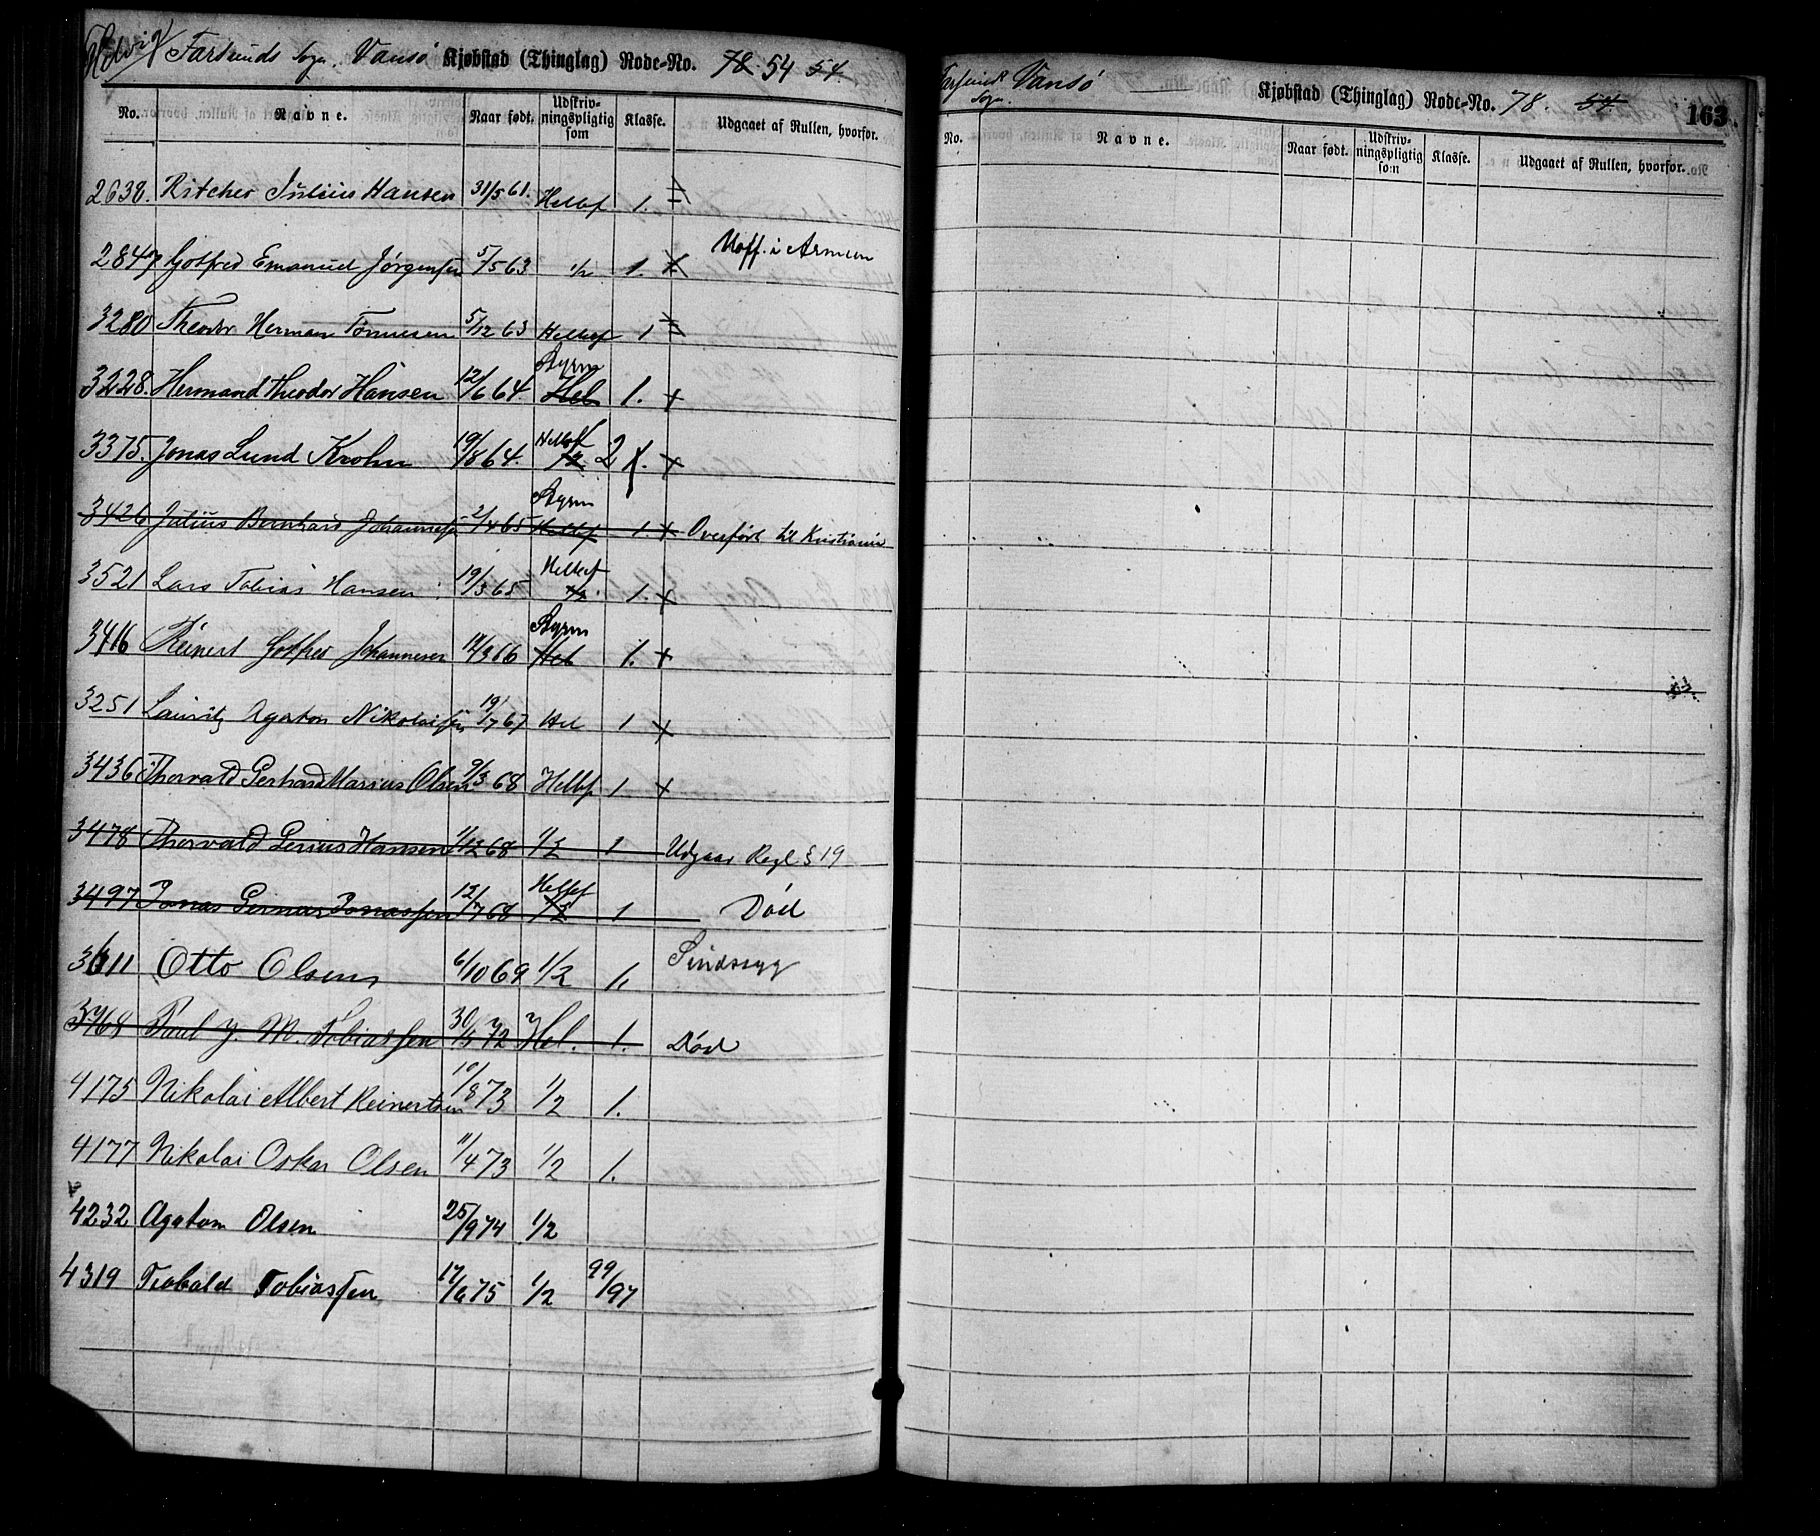 Helvig Farsunds Sogn. Vansø Kjøbstad (Thinglag) Rode-No. 78. 54 54.
No. Navne. Naar født. Udskrivningspligtig som Klasse. Udgaaet af Rullen, hvorfor.
2638. Ritcher Julius Hansen 31/5 61. Helbf 1.
2847 Gotfred Emanuel Jørgensen 5/5 63 1/2 1. X Uoff. i Armeen
3280 Theodor Herman Tønnesen 5/12 63 Helbef 1
Styrm
3228. Hermand Theodor Hansen 12/6 64. Hel 1. +
3375. Jonas Lund Krohn 19/8 64. Helbef 1/2 2 1. +
Styrm
3426 Julius Bernhard Johannessen 2/4 65 Helbef 1. + Overført til Kristiania
3521 Lars Tobias Hansen 19/3 65 Helbef 1/2. 1. +
Styrm
3416 Reinert Gotfred Johannesen 14/3 66 Hel 1. +
3251 Lauritz Agaton Nikolaisen 19/7 67 Hel 1 +
3436 Thorvald Gerhard Marius Olsen 9/3 68 Helbf 1. +
3478 Thorvald Severus Hansen 1/12 68 1/2 1 Udgaar Regl § 19
3497 Jonas Jonassen 12/7 68 Helbef 1/2 1 Død
3611 Otto Olsen 6/10 69 1/2 1. Sindssyg
3968 Paul J. M. Tobiassen 30/5 72 Hel. 1. Død
4175 Nikolai Albert Reinertsen 10/8 73 1/2 1.
4177 Nikolai Oskar Olsen 11/4 73 1/2 1.
4232 Agaton Olsen 25/9 74 1/2
4319 Teobald Tobiassen 17/6 75 1/2 99/97
Farsund Sogn. Vansø Kjøbstad (Thinglag) Rode-No. 78. 54 163
No. Navne. Naar født. Udskrivningspligtig som Klasse. Udgaaet af Rullen, hvorfor.